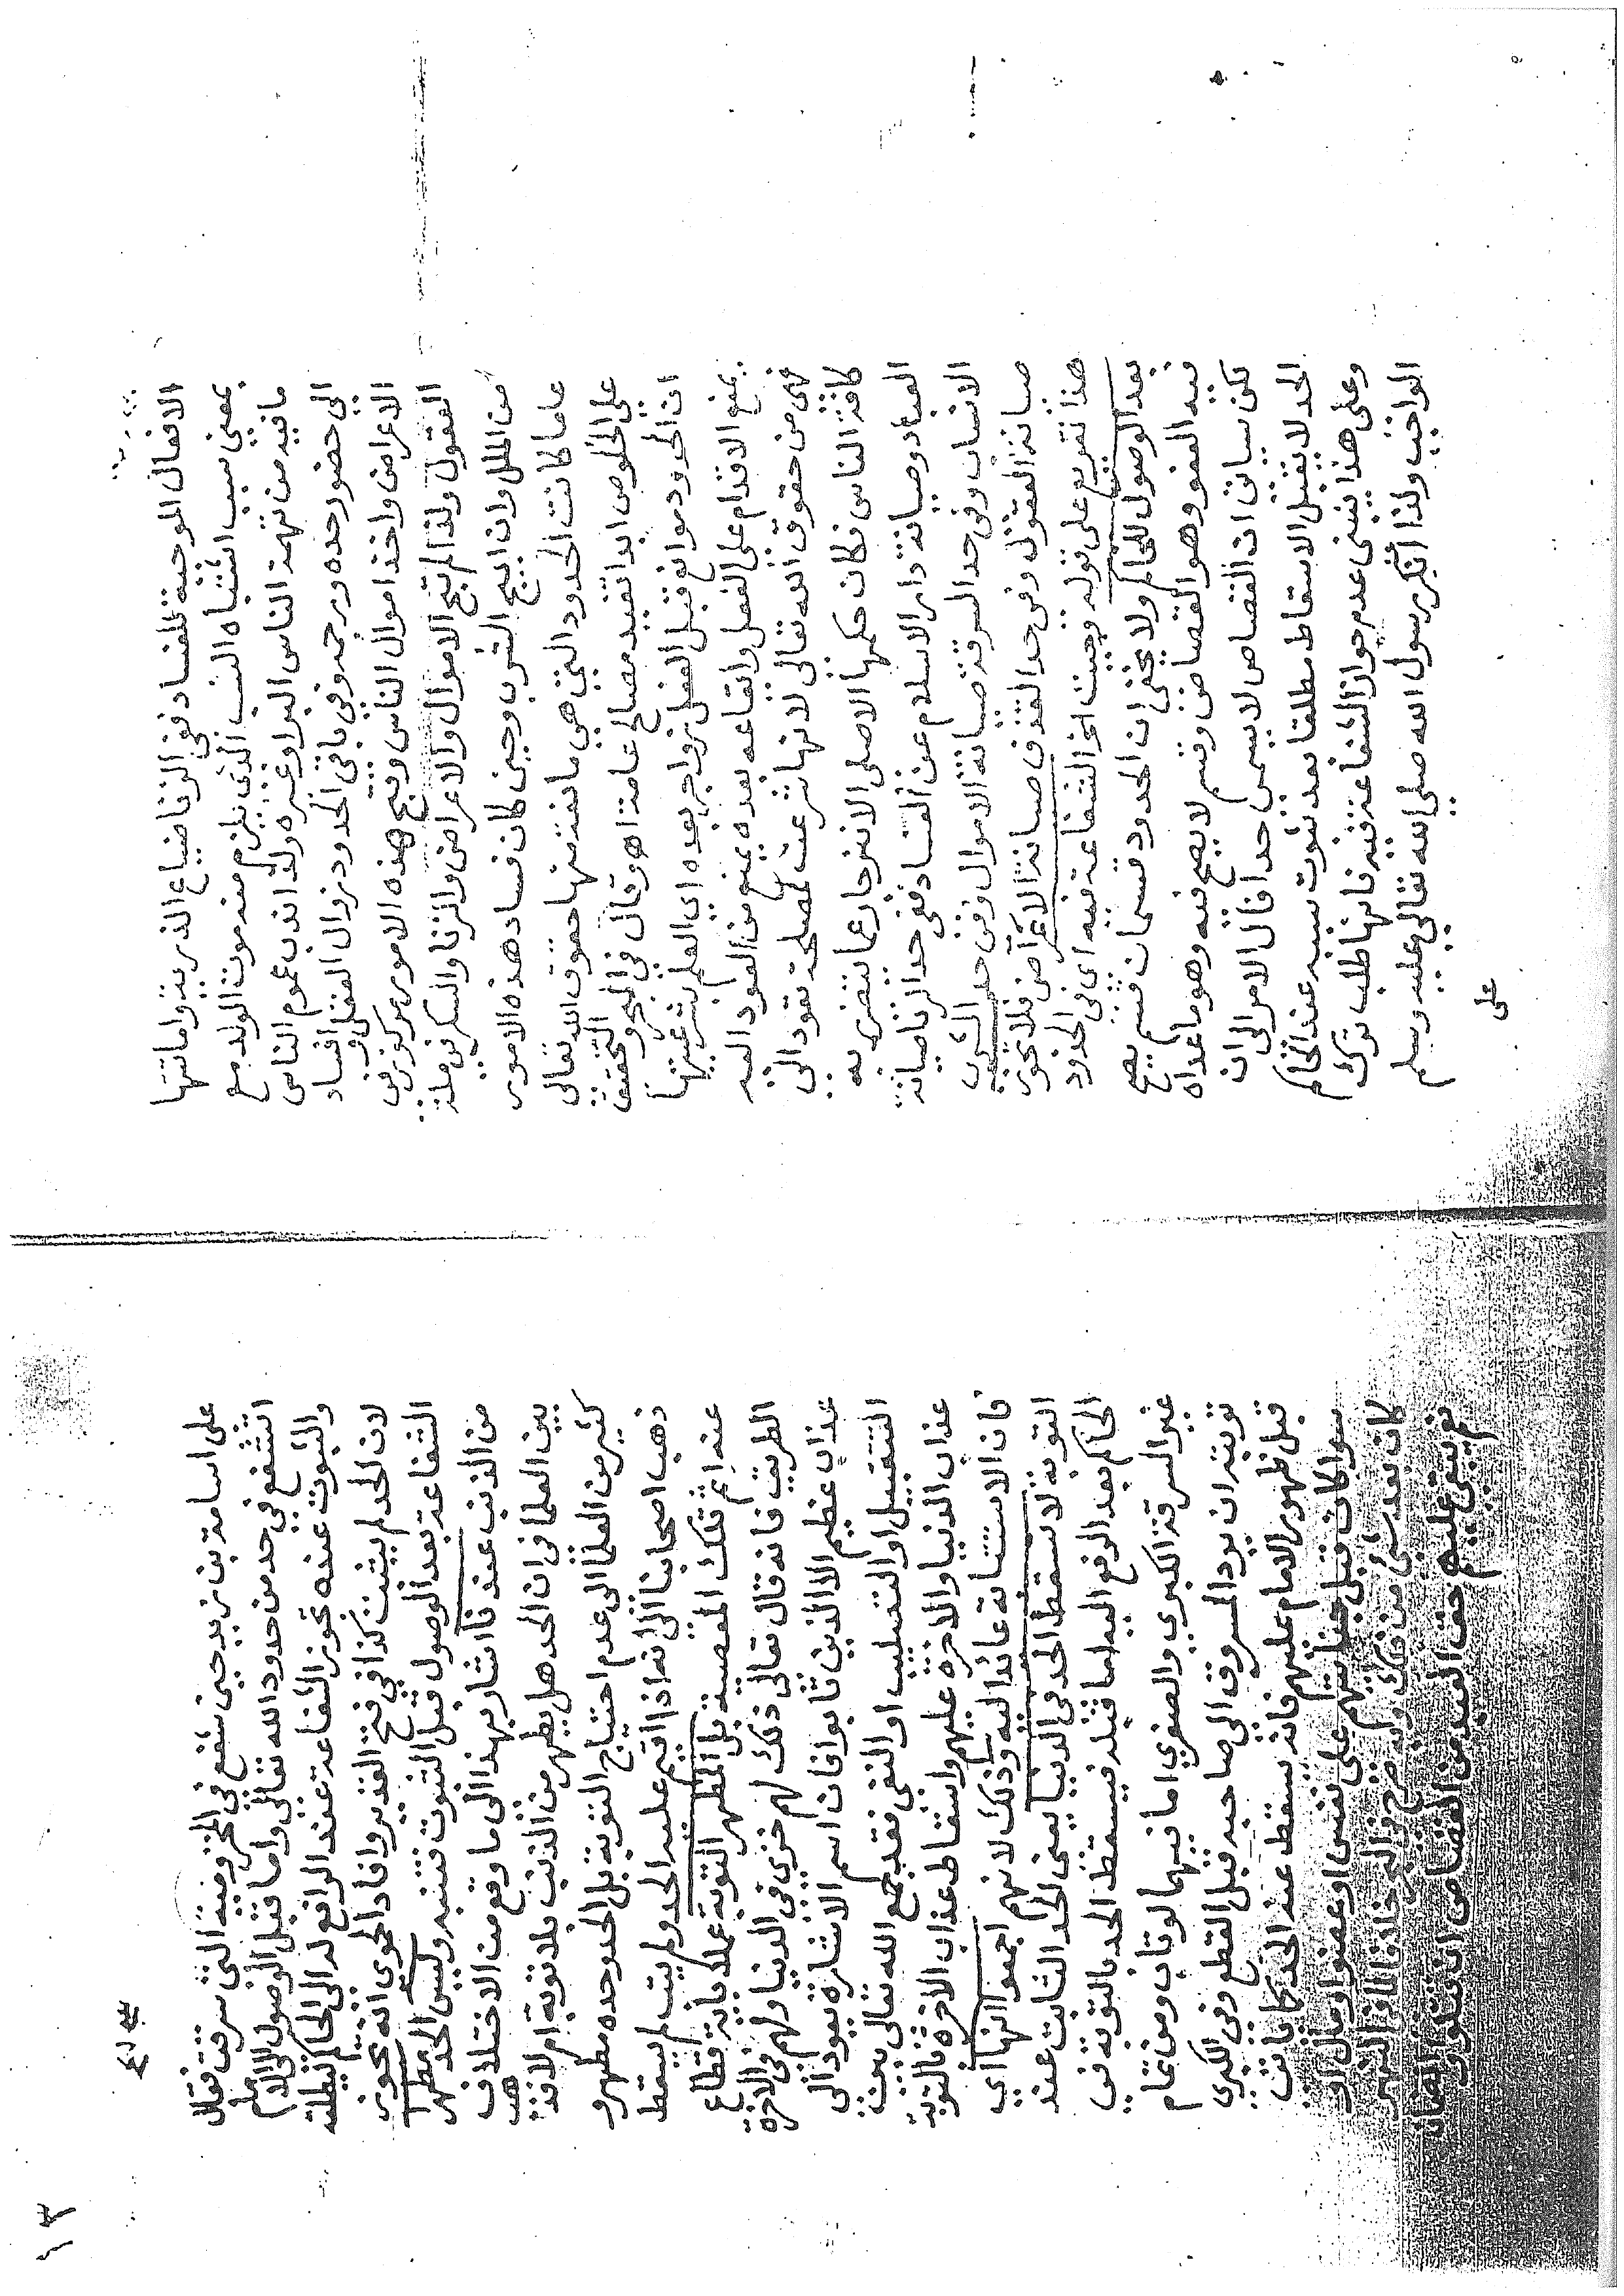 الافعال الموجبة للفساد ففي الزنا ضياع الذرية واماتتها
بمعنى سبب اشتباه النسب الذي يلزم منه موت الولد مع
ما فيه من تهمة الناس البراو غيره ولذا ندب عموم الناس
الى حضور حده ورجمه وفي باقي الحدود زوال العقل وافساد
الاعراض واخذ اموال الناس وقبح هذه الامور مركوز في
العقول ولذا لم تبح الاموال والاعراض والزنا والسكر في ملة
من الملل وان ابيح الشرب وحين كان فساد هذه الامور
عاما كانت الحدود التي هي مانعة منها حقوق الله تعالى
على الخلوص ابدا تقييد مصالح عامة اهـ وقال في البحر والتحقيق
ان الحدود موانع قبل الفعل زواجر بعده اي العلم بشرعيتها
يمنع الاقدام على الفعل وايقاعه بعده يمنع من العود اليه
فهي من حقوق الله تعالى لانها شرعت لمصلحة تعود الى
كافة الناس فكان حكمها الاصلي الانزجار عما يتضرر به
العباد وصيانة دار الاسلام عن الفساد ففي حد الزنا صيانة
الانساب وفي حد السرقة صيانة الاموال وفي حد الشرب
صيانة العقول وفي حد القذف صيانة الاعراض فلا تجوز
هذا تفريع على قوله وجبت الخ الشفاعة فيه اي في الحدود
بعد الوصول للحاكم ولا يخفى ان الحدود قسمان قسم يصح
فيه العفو وهو القصاص وقسم لا يصح فيه وهو ما عداه
لكن سياتي ان القصاص لا يسمى حدا قال الامر الى ان
الحد لا يقبل الاسقاط مطلقا بعد ثبوت سببه عند الحاكم
وعلى هذا يبنى عدم جواز الشفاعة فيه فانها طلب ترك
الواجب ولذا انكر رسول الله صلى الله تعالى عليه وسلم
على
١٣
على اسامة بن زيد حين شفع في المخزومية التي سرقت فقال
اتشفع في حد من حدود الله تعالى واما قبل الوصول الى الامام
والثبوت عنده تجوز الشفاعة عند الرافع له الى الحاكم ليطلقه
لان الحد لم يثبت كذا في فتح القدير وافاد الحموي انه تجوز
الشفاعة بعد الوصول قبل الثبوت تنبيه وليس الحد مطهرا
من الذنب عندنا اشار بهذا الى ما وقع من الاختلاف
بين العلما في ان الحد هل يطهر من الذنب بلا توبة ام لا فذهب
كثير من العلما الى عدم احتياج التوبة بل الحد وحده مطهر و
ذهب اصحابنا الى انه اذا اقيم عليه الحد ولم يتب لم يسقط
عنه اثم تلك المعصية بل المطهر التوبة عملا باية قطاع
الطريق فانه قال تعالى ذلك لهم خزي في الدنيا ولهم في الاخرة
عذاب عظيم الا الذين تابوا فان اسم الاشارة يعود الى
التقتيل او التصليب او النفي فقد جمع الله تعالى بين
عذاب الدنيا والاخرة عليهم واسقاط عذاب الاخرة بالتوبة
فان الاستثناء عائد اليه وذلك لانهم اجمعوا انها اي
التوبة لا تسقط الحد في الدنيا يعني الحد الثابت عند
الحاكم بعد الرفع اليه اما قبله فيسقط الحد بالتوبة في
غير السرقة الكبرى والصغرى اما فيهما لو تاب ومن تمام
توبته ان يرد المسروق الى صاحبه قبل القطع وفي الكبرى
قبل ظهور الامام عليهم فانه يسقط عنه الحد كما ياتي
سوا كان قبل جنايتهم على نفس او عضو او مال او
كان بعد شي من ذلك وبه صرح في البحر خلافا لما في النهر
نعم يبقى عليهم حق العبد من القصاص ان قتلوا والضمان